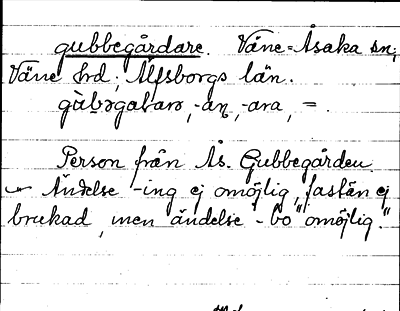 gubbegårdare. Väne-Åsaka sn;
Väne hd; Älfsborgs län.
gùbəgaɫarə, -aɳ, -ara, =.
Person från Ås. Gubbegården.
– Ändelse -ing ej omöjlig, fastän ej
brukad, men ändelse -bo "omöjlig."